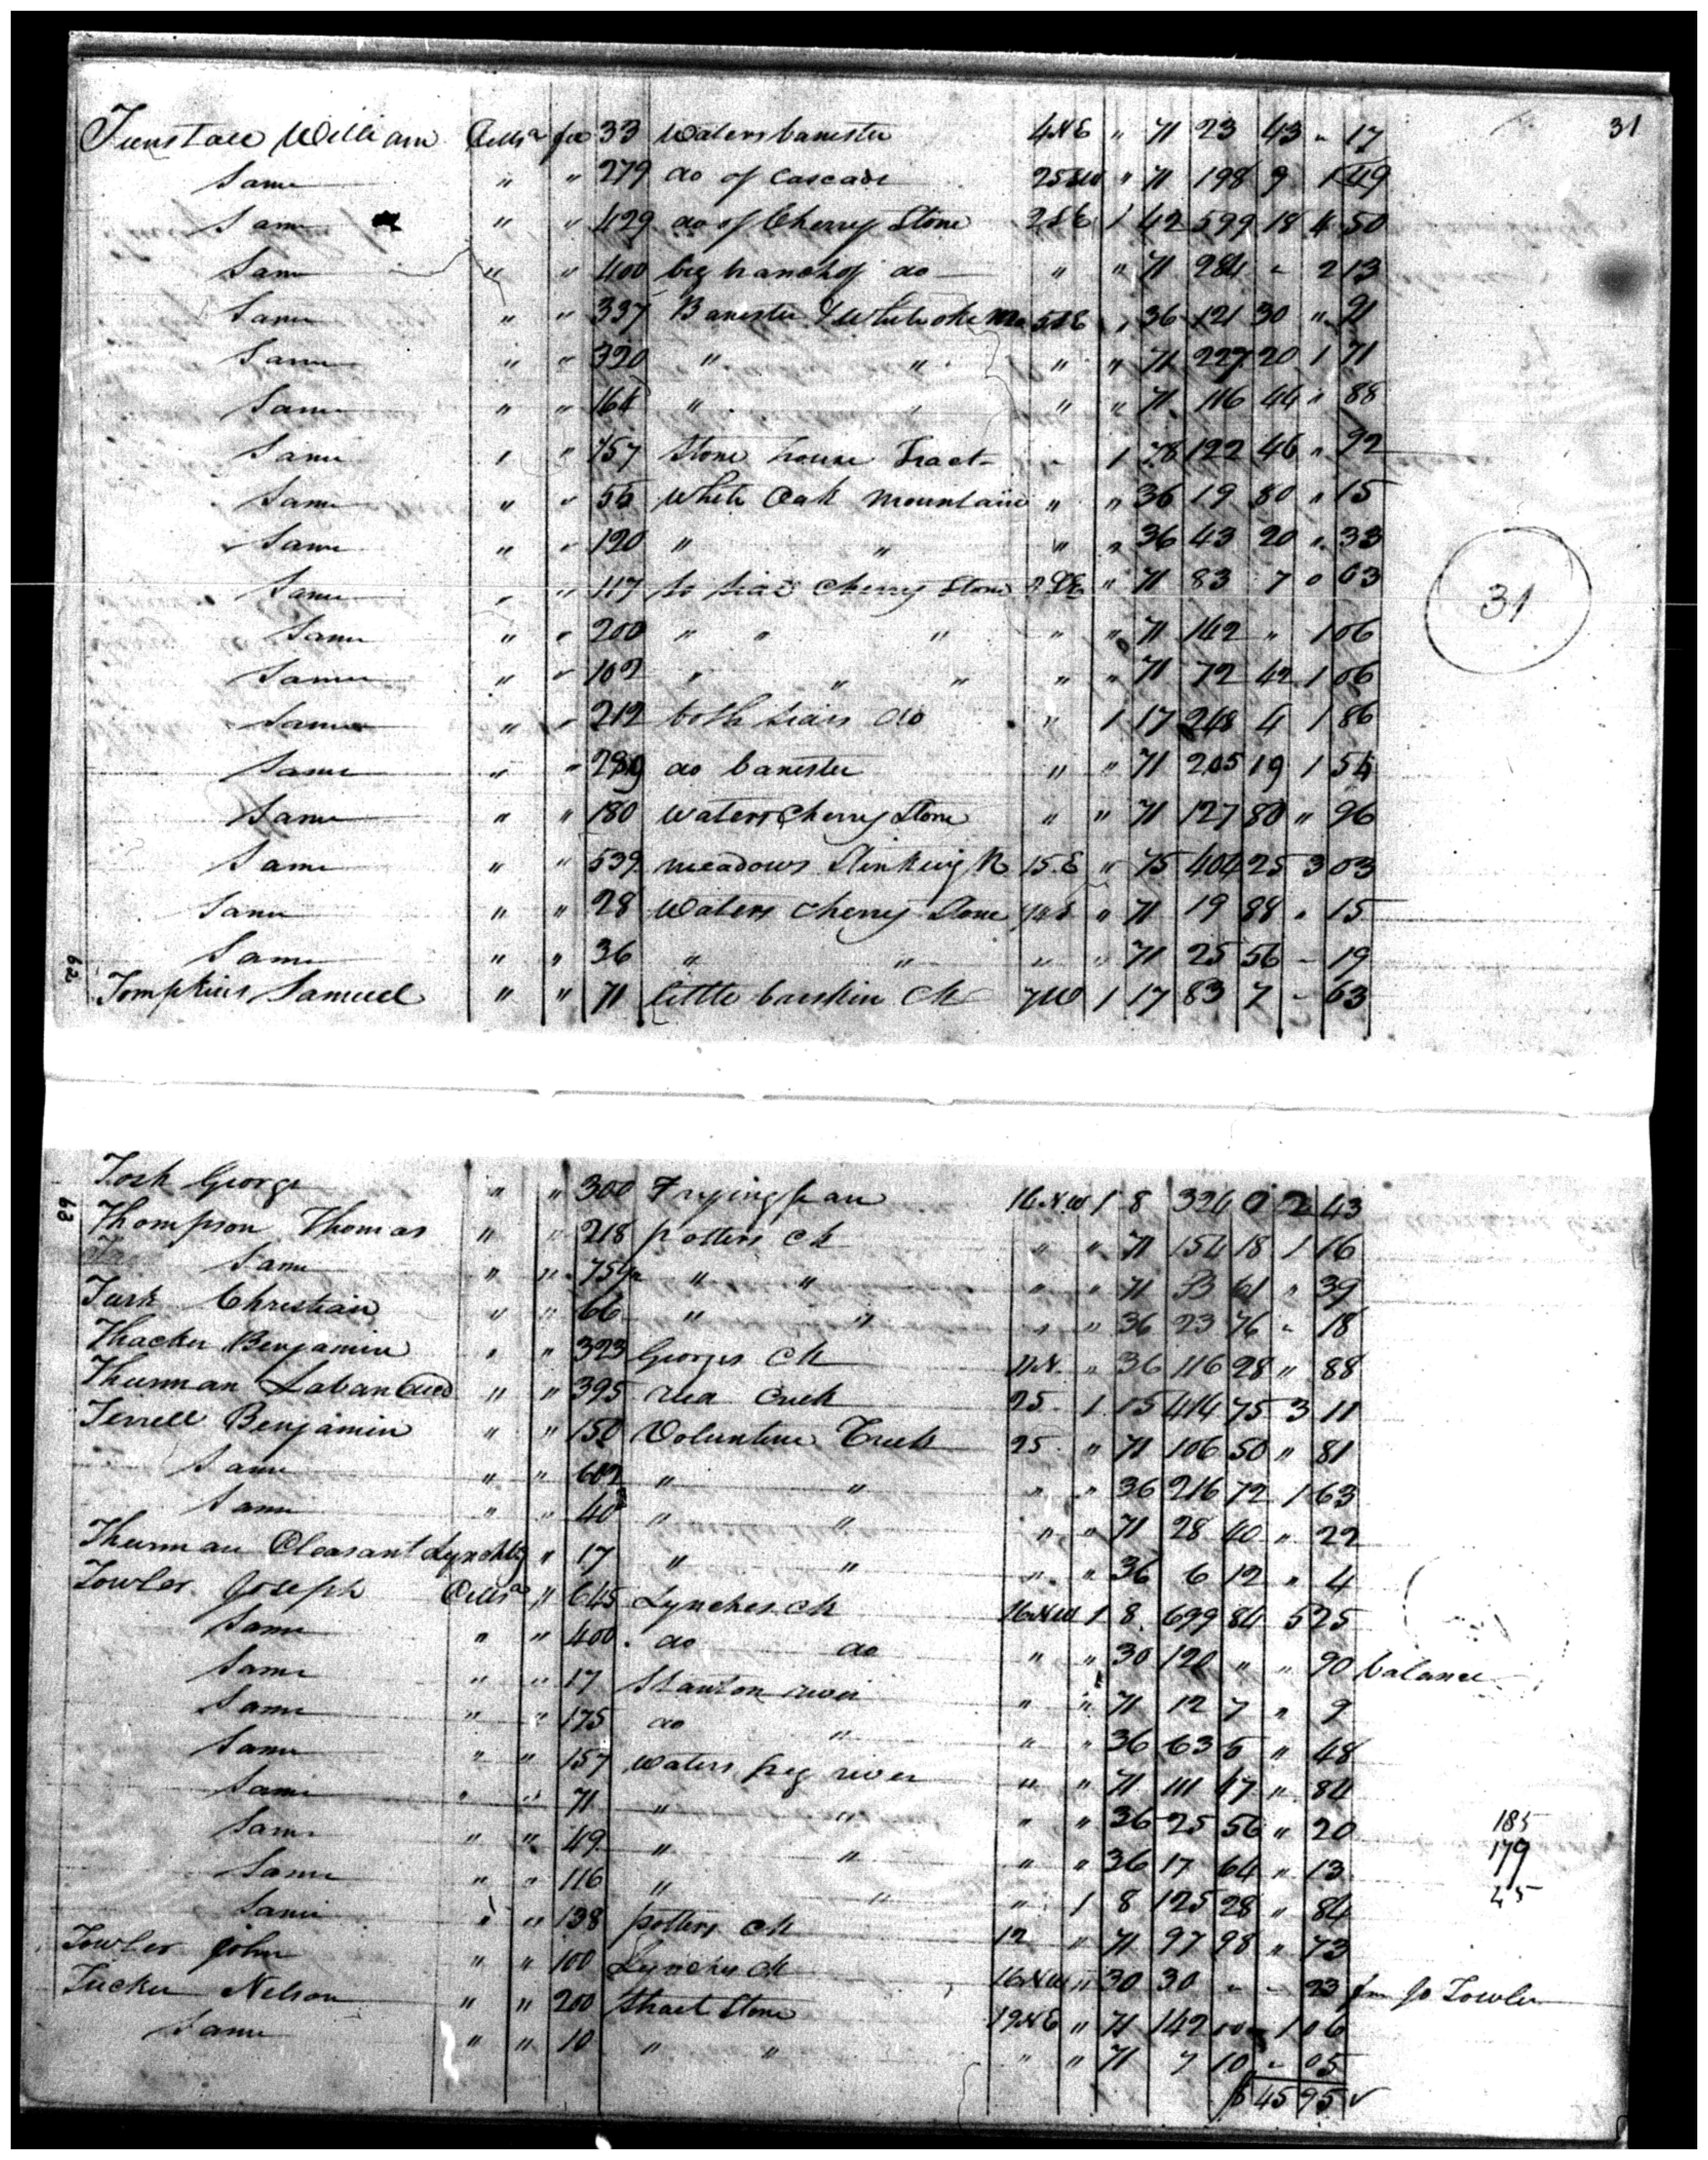 31
Tunstall William Pittsa fee 33 Waters banister 4NE " 71 23 43 " 17
Same " " 279 do of Cascade 25SW " 71 198 9 1 49
Same " " 429 do of Cherry Stone 2SE 1 42 599 18 4 50
Same " " 400 big branch of do " " 71 284 " 2 13
Same " " 337 Banister & White oke Mo 5SE " 36 121 30 " 91
Same " " 320 " " " " 71 227 20 1 71
Same " " 164 " " " " 71 116 44 " 88
Same " " 157 Stone house Tract " 1 78 122 46 " 92
Same " " 55 White Oak Mountain " " 36 19 80 " 15
Same " " 120 " " " " 36 43 20 " 33
Same " " 117 so side Cherry Stone 2SE " 71 83 7 0 63
31
Same " " 200 " " " " " 71 142 " 1 06
Same " " 102 " " " " " 71 72 42 1 06
Same " " 212 both sides do " 1 17 248 4 1 86
Same " " 289 do banister " " 71 205 19 1 54
Same " " 180 Waters Cherry Stone " " 71 127 80 " 96
Same " " 539 meadows Stinking R 15.E " 75 404 25 3 03
Same " " 28 Waters Cherry Stone " 71 19 88 " 15
Same " " 36 " " " " 71 25 56 " 19
62
Tompkins Samuel " " 71 little bearskin Ck 7W 1 17 83 7 " 63
63
Tosh George " " 300 Frying pan 16.NW 1 8 324 0 2 43
Thompson Thomas " " 218 potters Ck " " 71 154 18 1 16
Same " " 75½ " " " " 71 53 61 " 39
Turk Christian " " 66 " " " " 36 23 76 " 18
Thacker Benjamin " " 323 Georges Ck 11N. " 36 116 28 " 88
Thurman Laban decd " " 395 red Creek 25 1 15 414 75 3 11
Terrell Benjamin " " 150 Voluntine Creek 25 " 71 106 50 " 81
Same " " 602 " " " " 36 216 72 1 63
Same " " 40 " " " " 71 28 40 " 22
Thurman Pleasant Lynchbg " 17 " " " " 36 6 12 " 4
Towler Joseph Pittsa " 645 Lynches Ck 16NW 1 8 699 84 5 25
Same " " 400 do do " " 30 120 " " 90 balance
Same " " 17 Stanton river " " 71 12 7 " 9
Same " " 175 do " " " 36 63 5 " 48
Same " " 157 Waters pig river " " 71 111 47 " 84
Same " " 71 " " " " 36 25 56 " 20
185
Same " " 49 " " " " 36 17 64 " 13
179
Same " " 116 " " " 1 8 125 28 " 84
45
Same " " 138 potters Ck 12 " 71 97 98 " 73
Towler John " " 100 Lynches Ck 16NW " 30 30 " " 23 fm Jo Towler
Tucker Nelson " " 200 Strait Stone 19NE " 71 142 00 1 06
Same " " 10 " " " " 71 7 10 " 05
$ 45 95